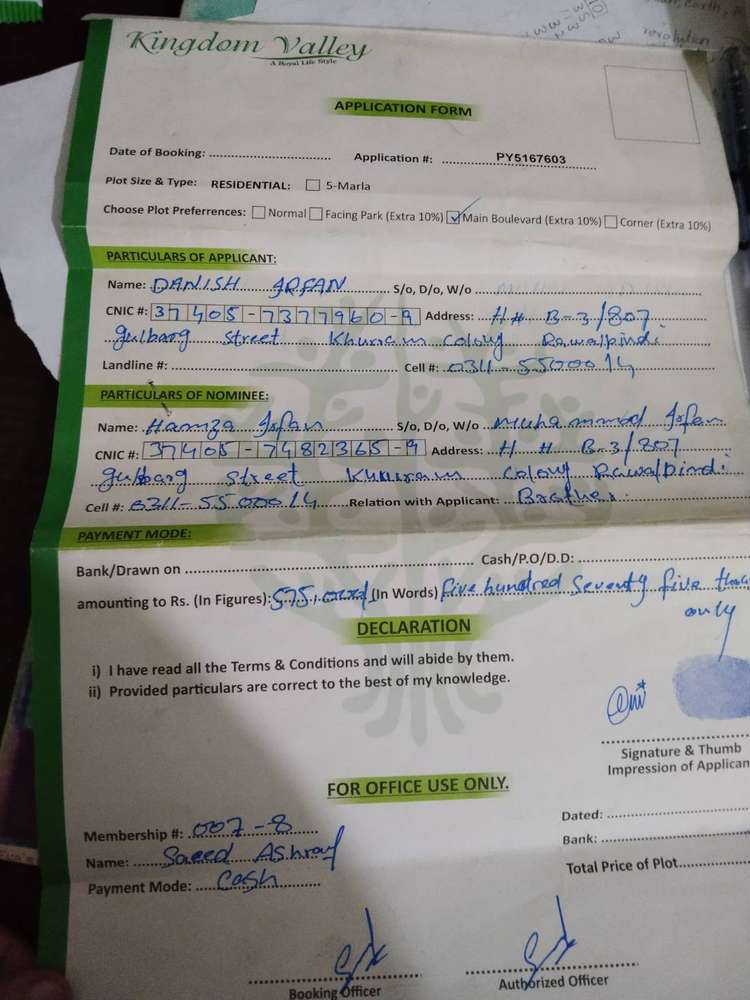 Kingdom Valley
A Royal Life Style
APPLICATION FORM
Date of Booking: .......................... Application #: ............ PY5167603
Plot Size & Type: RESIDENTIAL: 5-Marla
Choose Plot Preferrences: Normal Facing Park (Extra 10%) Main Boulevard (Extra 10%) Corner (Extra 10%)
PARTICULARS OF APPLICANT:
Name: DANISH IRFAN S/o, D/o, W/o
CNIC #: 37405-7377960-9 Address: H# B-3/807
gulbarg Street Khuram Colony Rawalpindi
Landline #: Cell #: 0311-5500014
PARTICULARS OF NOMINEE:
Name: Hamza Irfan S/o, D/o, W/o Muhammad Irfan
CNIC #: 37405-7482365-9 Address: H # B-3/807
gulbarg Street Khuram Colony Rawalpindi
Cell #: 0311-5500014 Relation with Applicant: Brother
PAYMENT MODE:
Bank/Drawn on Cash/P.O/D.D:
amounting to Rs. (In Figures): (In Words) five hundred Seventy five
only
DECLARATION
i) I have read all the Terms & Conditions and will abide by them.
ii) Provided particulars are correct to the best of my knowledge.
Signature & Thumb
Impression of Applican
FOR OFFICE USE ONLY.
Membership #: 007-8
Name: Saeed Ashraf
Payment Mode: Cash
Dated:
Bank:
Total Price of Plot
Booking Officer
Authorized Officer